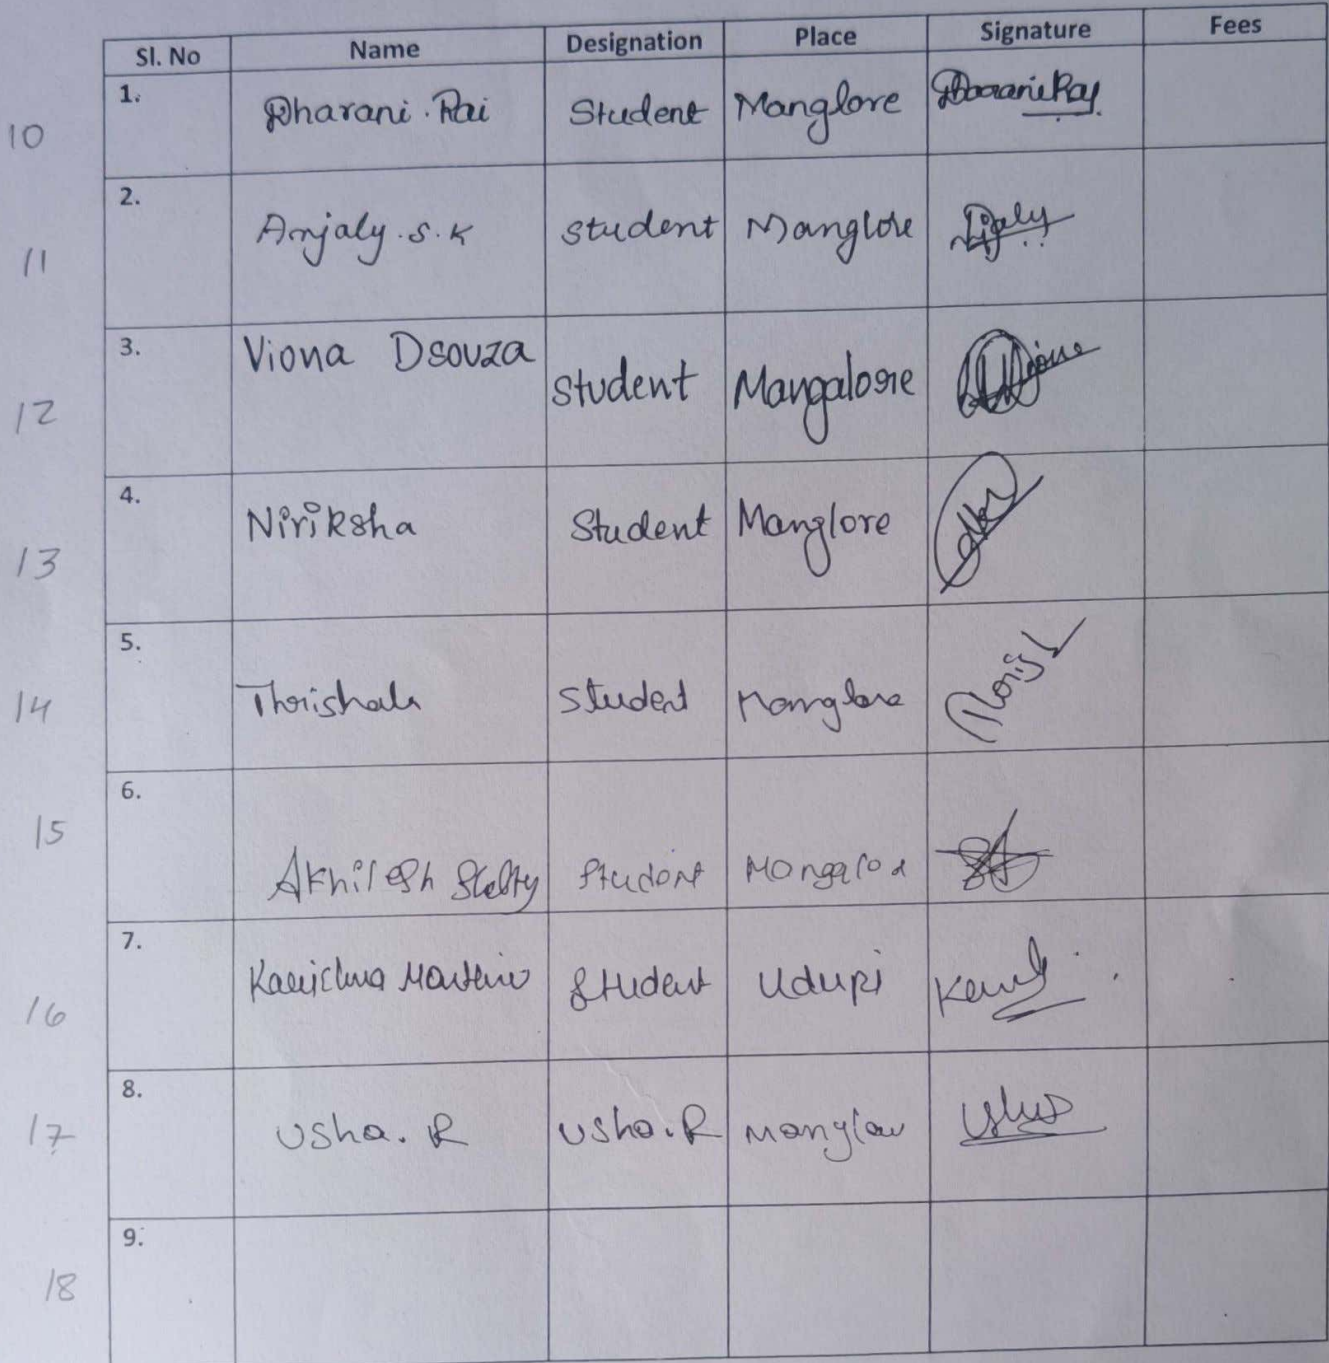 Sl. No Name Designation Place Signature Fees
10 1. Dharani. Rai Student Manglore Dharani Rai
11 2. Anjaly. S. K Student Manglore Anjaly
12 3. Viona Dsouza Student Mangalore
13 4. Niriksha Student Manglore
14 5. Thrishala Student Manglore
15 6. Akhilesh Shetty Student
16 7. Student Udupi
17 8. Usha. R Usha. R Usha
18 9.